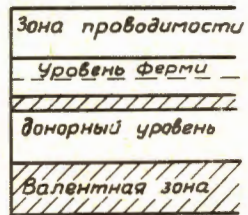 Зона проводимости
Уровень ферми
донорный уровень
Валентная зона